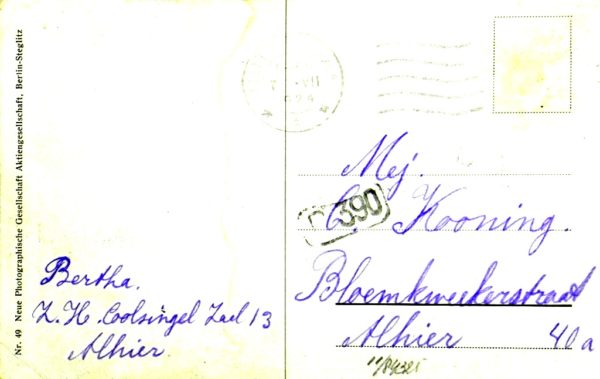 Nr. 49 Neue Photographische Gesellschaft Aktiengesellschaft, Berlin-Steglitz
Bertha.
Z.H. Coolsingel Zaal 13
Alhier.
Mej.
C. Kooning.
390
Bloemkweekerstraat
Alhier 40a